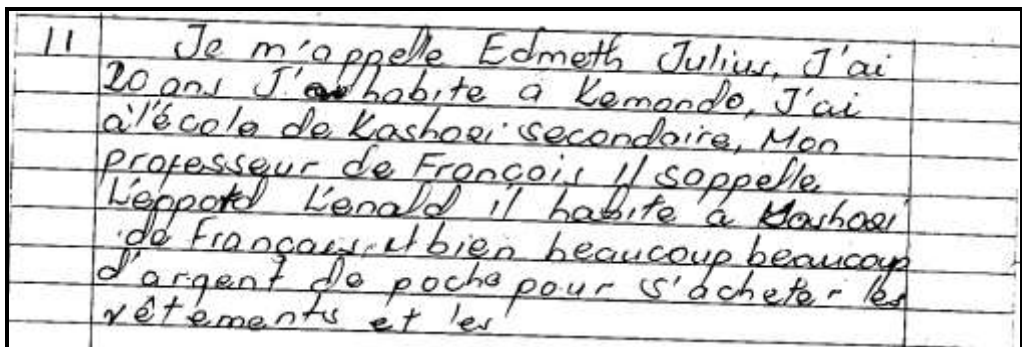 11 Je m'appelle Edmeth Julius, J'ai
20 ans J'habite a Kemondo, J'ai
à l'école de Kashozi secondaire, Mon
professeur de François il sappelle
Leppord Lenald il habite a Kashozi
de Français, et bien beaucoup beaucoup
d'argent de poche pour s'acheter les
vêtements et les